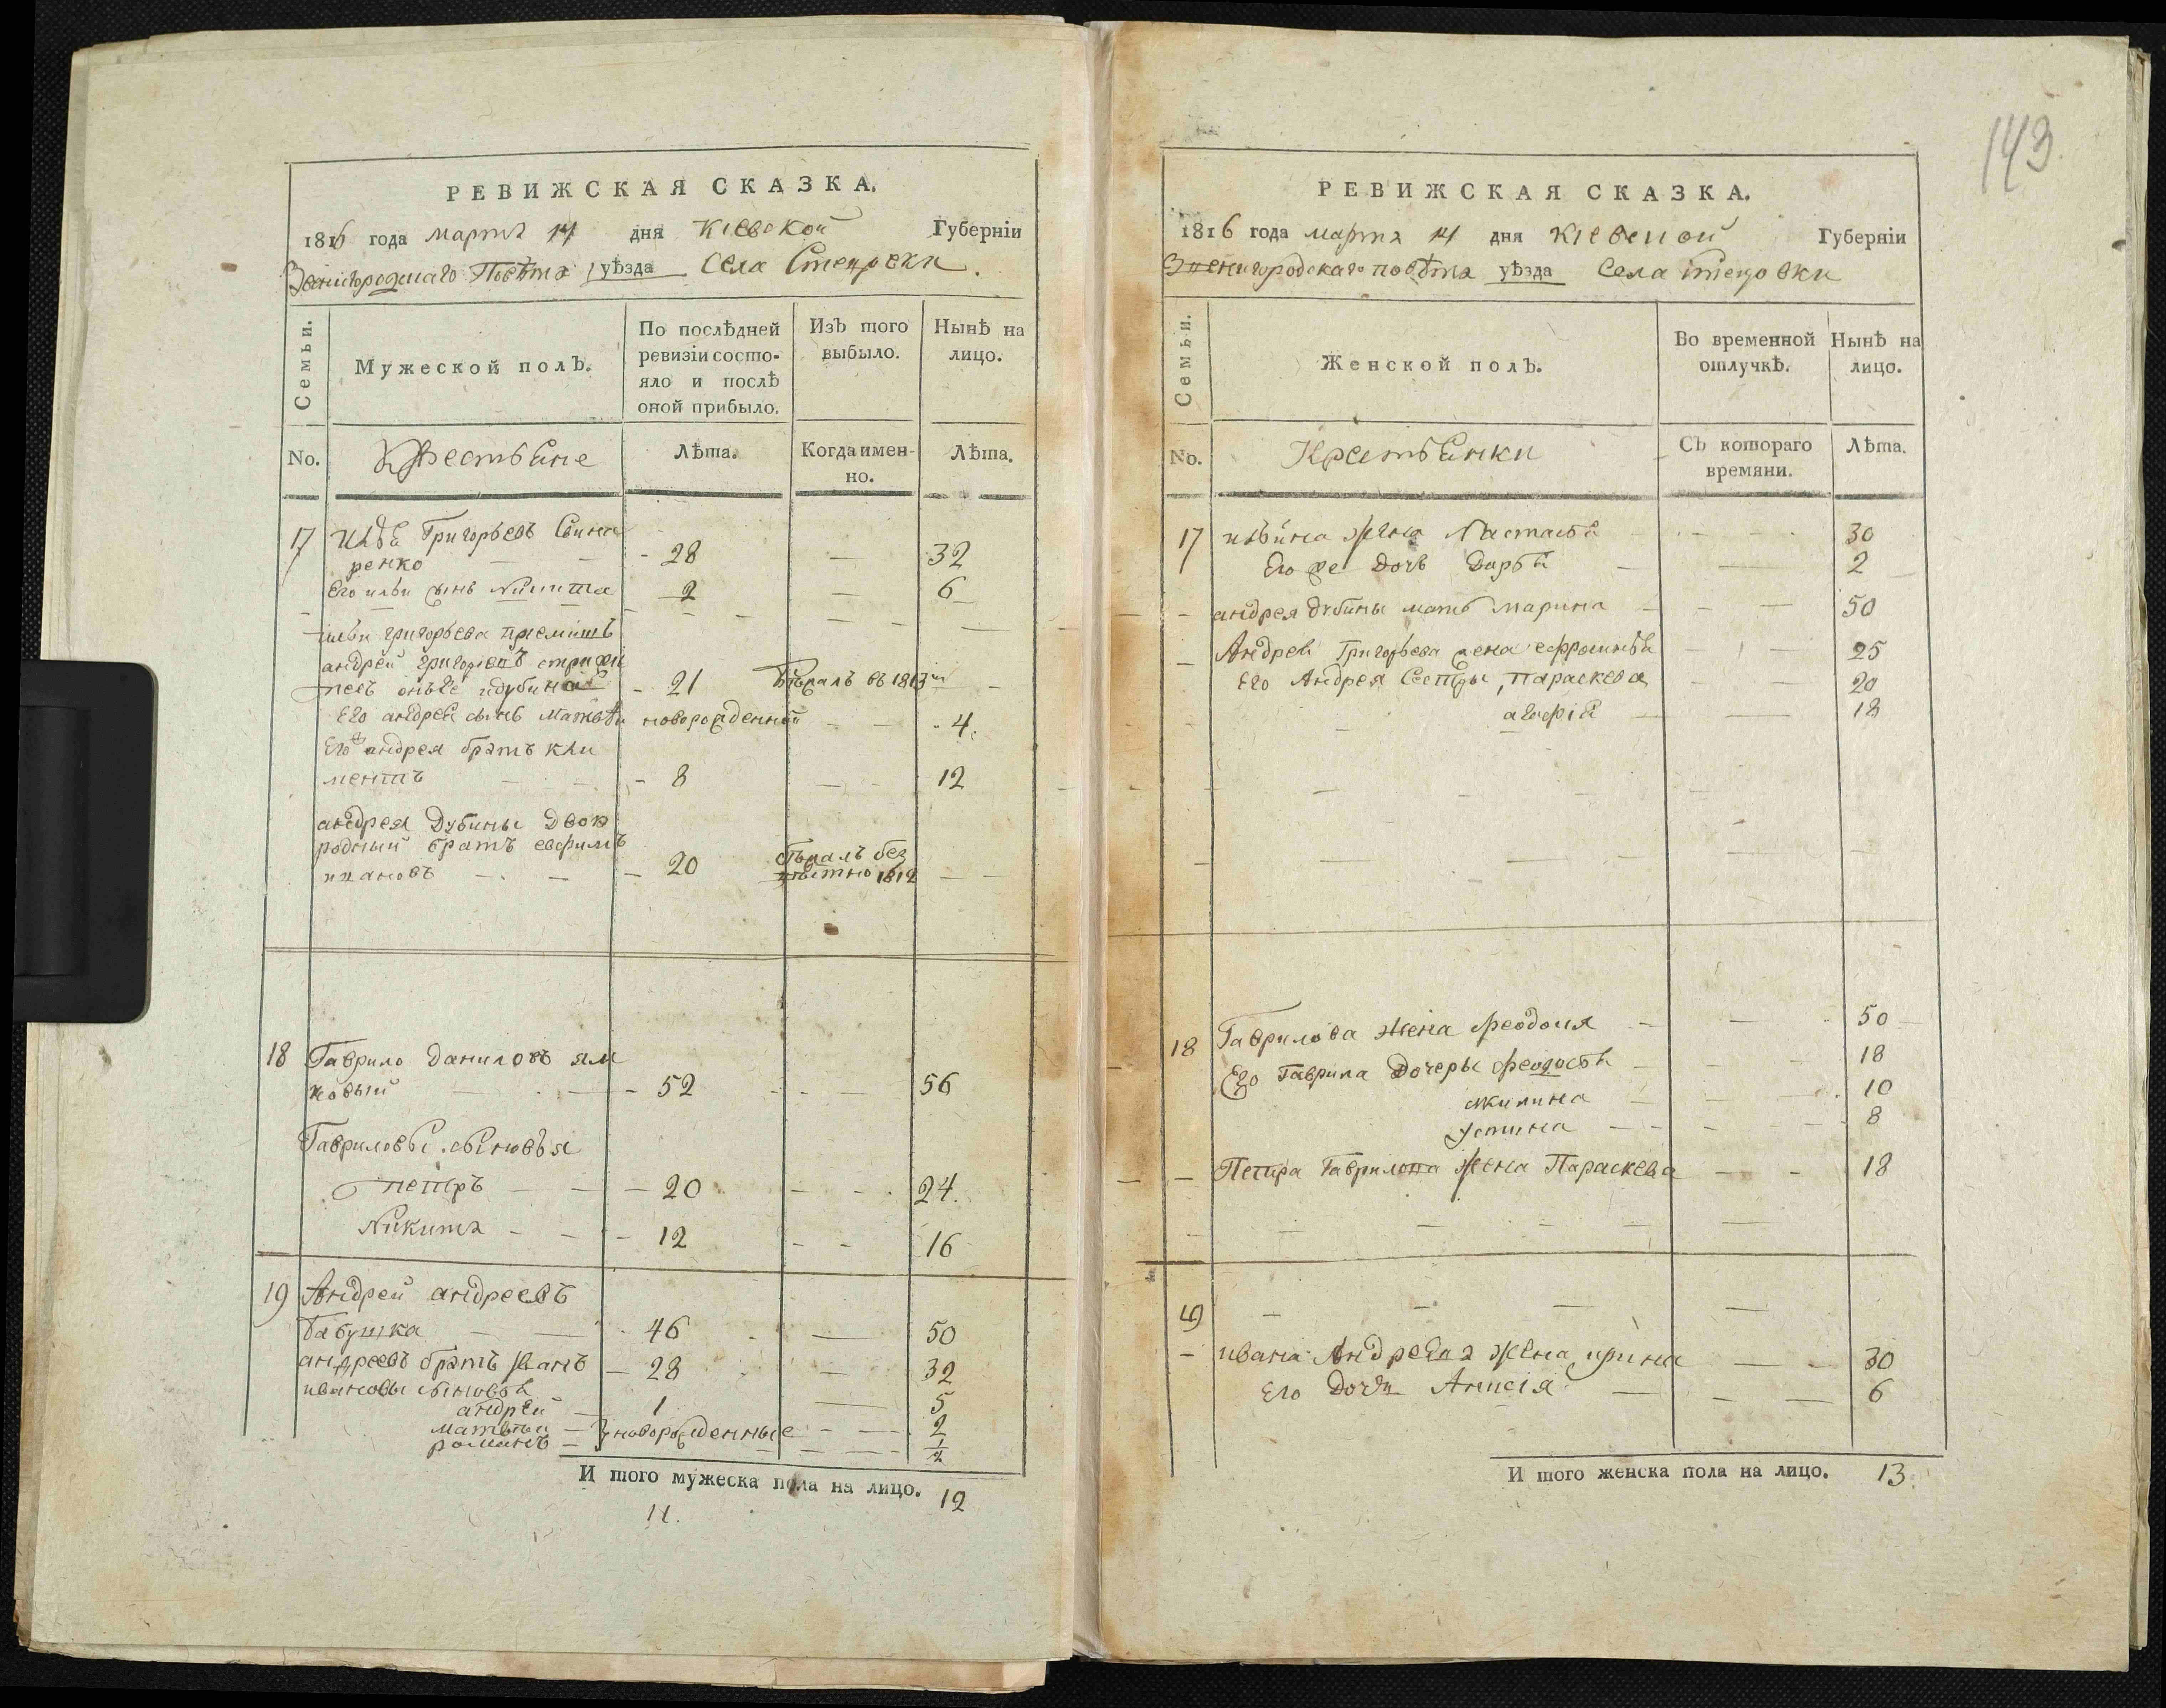 РЕВИЖСКАЯ СКАЗКА.
1816 года марта 14 дня Кіевской Губерніи
Повѣта уѣзда Села Стецовки.
Семьи.
Мужеской полъ.
По послѣдней ревизіи состо-
яло и послѣ оной прибыло.
Изъ того выбыло.
Нынѣ на лицо.
No.
Крестьяне
Лѣта.
Когда имен-
но.
Лѣта.
17 Илья Григорьевъ Свина
ренко - 28 — 32
Его ильи сынъ Никита 2 — 6
ильи григорьева приемышъ
андрей
онъ же дубина - 21 бѣжалъ въ 1813м —
Его андрея сынъ Матвѣй новорожденной - 4.
Его андрея братъ кли
ментъ - 8 — 12
андрея Дубины двою
родный братъ ефимъ
ивановъ - 20 бѣжалъ без
вѣстно 1812 —
18 Гаврило даниловъ ям
ковый - 52 — 56
Гавриловы сыновья
петръ — 20 — 24.
Никита - 12 — 16
19 Андрей андреевъ
бабушка 46 — 50
андреевъ братъ Иванъ - 28 — 32
ивановы сыновья
андрей 1 — 5
матвѣй - новорожденные - 2
романъ - 1/2
И того мужеска пола на лицо. 12
11.
143
РЕВИЖСКАЯ СКАЗКА.
1816 года марта 14 дня Кіевской Губерніи
Звенигородскаго повѣта уѣзда Села Стецовки
Семьи.
Женской полъ.
Во временной отлучкѣ.
Нынѣ на лицо.
No.
Крестьянки
Съ котораго времяни.
Лѣта.
17 ильина жена Настасья 30
Его же дочь Дарья 2
андрея дубины мать марина 50
Андрея Григорьева жена ефросинья 25
Его Андрея Сестры, параскева 20
агафія 18
18 Гаврилова жена феодосия 50
Его Гаврила дочеры феодосья 18
акилина 10
устина 8
Петра Гаврилова жена Параскева 18
19 —
ивана Андреева жена ирина 30
Его дочь Анисія 6
И того женска пола на лицо. 13.